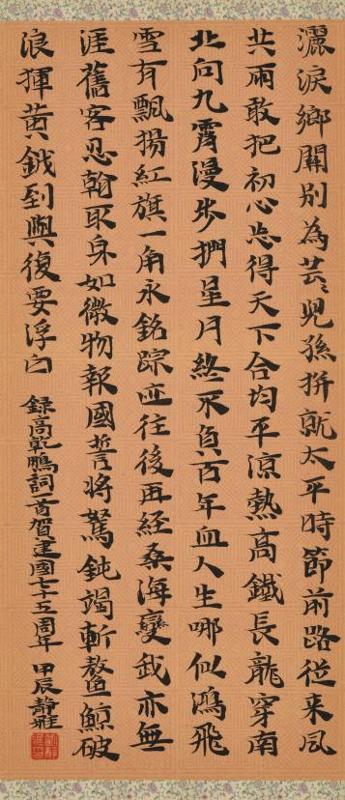 灑淚鄉關別為芸〻兒孫拚就太平時節前路從來风
共雨敢把初心忘得天下合均平涼熱高鐵長龍穿南
北向九霄漫步捫星月終不負百年血人生哪似鴻飛
雪有飄揚紅旗一角永銘踪迹往後再經桑海變我亦無
涯舊客忍翰取身如微物報國誓將駑鈍竭斬鰲鯨破
浪揮黃鉞到興復要浮白
録高乾鵬詞一首賀建國七十五周年 甲辰 靜